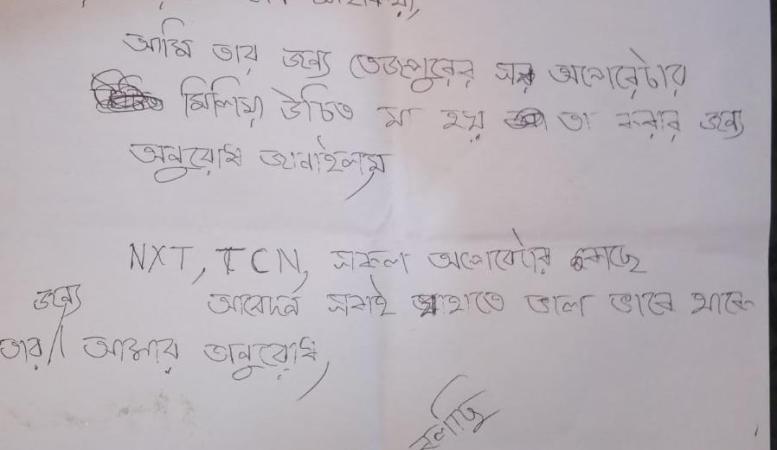 আমি তার জন্য তেজপুরের সব অপেরেটার
মিলিয়া উচিত মা হয় তা করার জন্য
অনুরোধ জানাইলাম
NXT, TCN, সকল অপেরেটার কাছে
আবেদন সবাই যাহাতে ভাল ভাবে থাকে
তার জন্য আমার অনুরোধ,